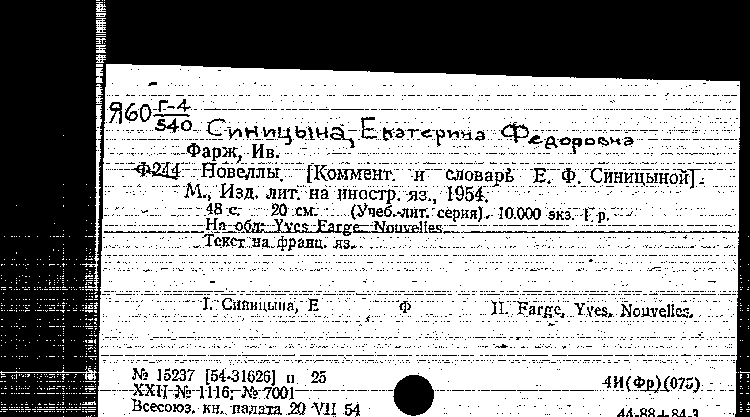 Я60 Г-4
540
Синицына, Екатерина Федоровна
Фарж, Ив.
Ф244 Новеллы. [Коммент. и словарь Е. Ф. Синицыной].
М., Изд. лит. на иностр. яз., 1954.
48 с. 20 см. (Учеб. лит. серия). 10.000 экз. 1 р.
На обл: Yves Farge. Nouvelles.
Текст на франц. яз.
I. Синицына, Е Ф II. Farge, Yves. Nouvelles.
№ 15237 [54-31626] п 25 4И(Фр)(075)
XXII № 1116; № 7001
Всесоюз. кн. палата 20 VII 54 44-88+84-3